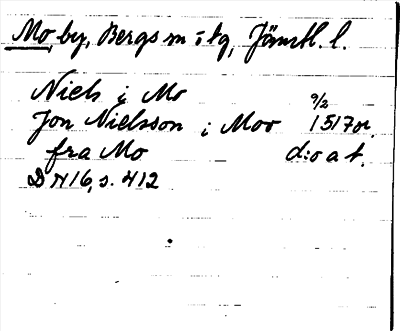 Mo, by, Bergs sn o. tg, Jämtl. l.
Niels i Mo
Jon Nielsson i Moo 9/2 1517 or.
fra Mo d:o a t.
DN 16, s. 412